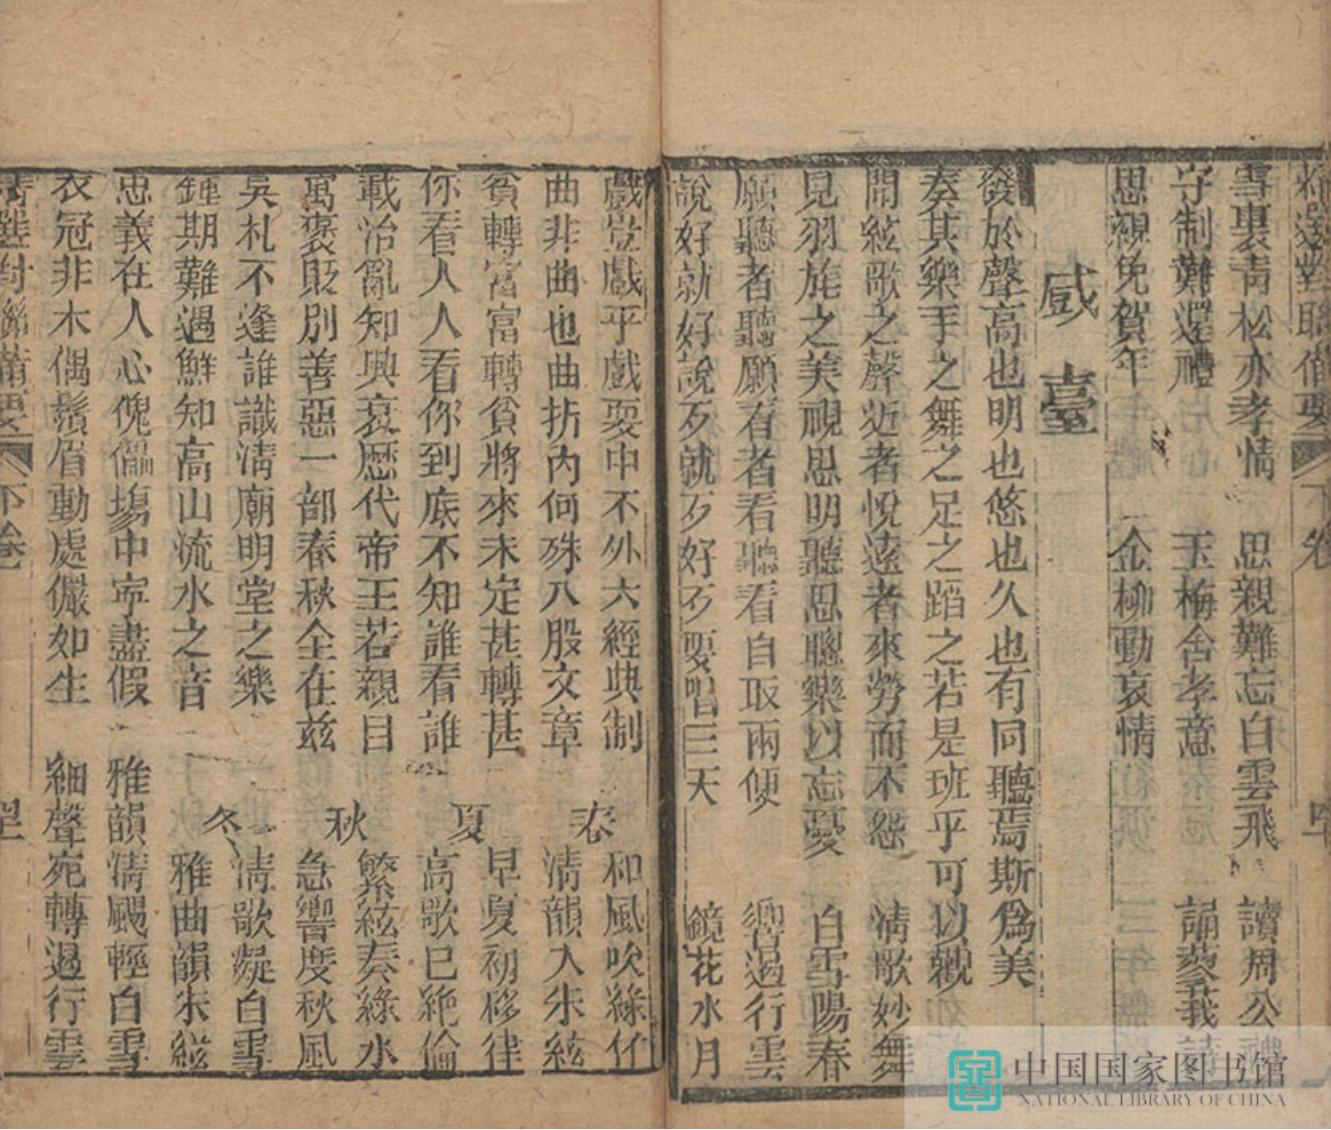 精選對聯備要 下卷
雪裏青松亦孝情 思親難忘白雲飛 讀周公
守制難還禮 玉梅含孝意 誦蓼莪
思親免賀年 金柳動哀情
戲臺
發於聲高也明也悠也久也有同聽焉斯爲美
奏其樂手之舞之足之蹈之若是班乎可以觀
聞絃歌之聲近者悅遠者來勞而不怨 清歌妙舞
見羽旄之美視思明聽思聰樂以忘憂 白雪陽春
願聽者聽願看者看聽看自取兩便 響遏行雲
說好就好說歹就歹好歹要唱三天 鏡花水月
戲豈戲乎戲耍中不外六經典制 春 和風吹綠仗
曲非曲也曲折內何殊八股文章 清韻入朱絃
貧轉富富轉貧將來未定甚轉甚 夏 早夏初移律
你看人人看你到底不知誰看誰 高歌已絶倫
載治亂知興衰歷代帝王若親目 秋 繁絃奏綠水
寓褒貶別善惡一部春秋全在茲 急響度秋風
吳札不逢誰識清廟明堂之樂 冬 清歌凝白雪
鍾期難遇鮮知高山流水之音 雅曲韻朱絃
忠義在人心傀儡塲中寕盡假 雅韻清颺輕白雪
衣冠非木偶鬚眉動處儼如生 細聲宛轉遏行雲
精選對聯備要 下卷
中国国家图书馆
NATIONAL LIBRARY OF CHINA